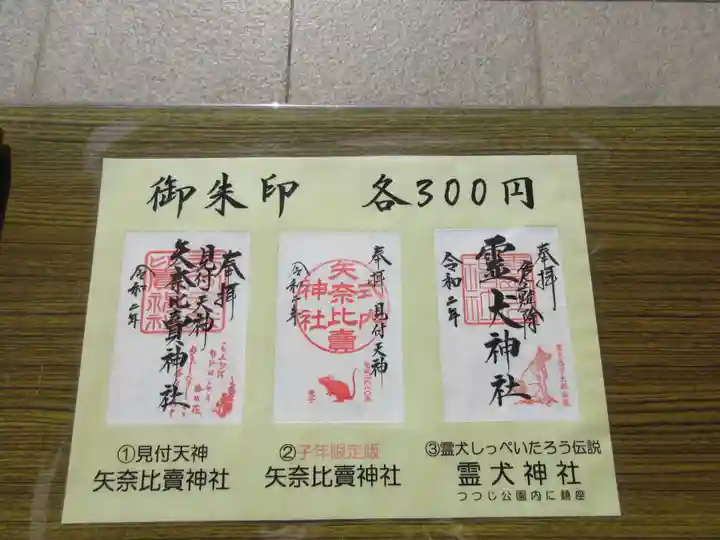 御朱印 各300円
奉拝
見付天神
矢奈比賣神社
令和二年
奉拝 見付天神
式内
矢奈比賣
神社
令和二年
奉拝
霊犬神社
令和二年
①見付天神
矢奈比賣神社
②子年限定版
矢奈比賣神社
③霊犬しっぺいたろう伝説
霊犬神社
つつじ公園内に鎮座